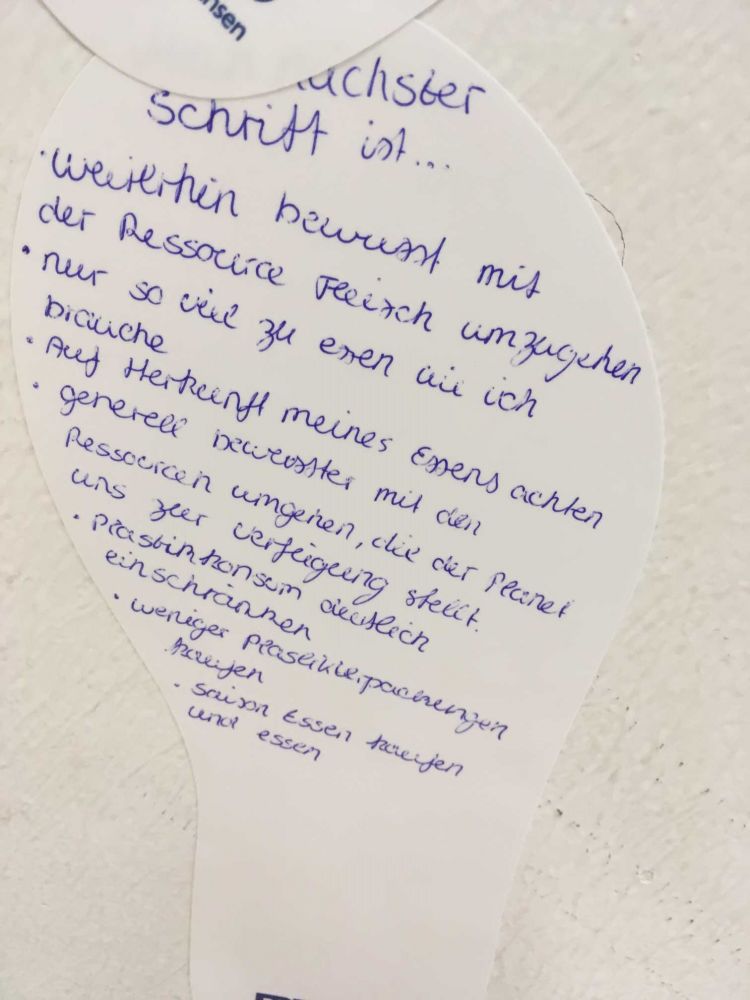 nsen
ächster
Schritt ist...
· Weiterhin bewusst mit
der Ressource Fleisch umzugehen
· nur so viel zu essen wie ich
brauche
· Auf Herkunft meines Essens achten
· generell bewusster mit den
Ressourcen umgehen, die der Planet
uns zur Verfügung stellt.
· Plastikkonsum deutlich
einschränken
· weniger Plastikverpackungen
kaufen
· saison Essen kaufen
und essen